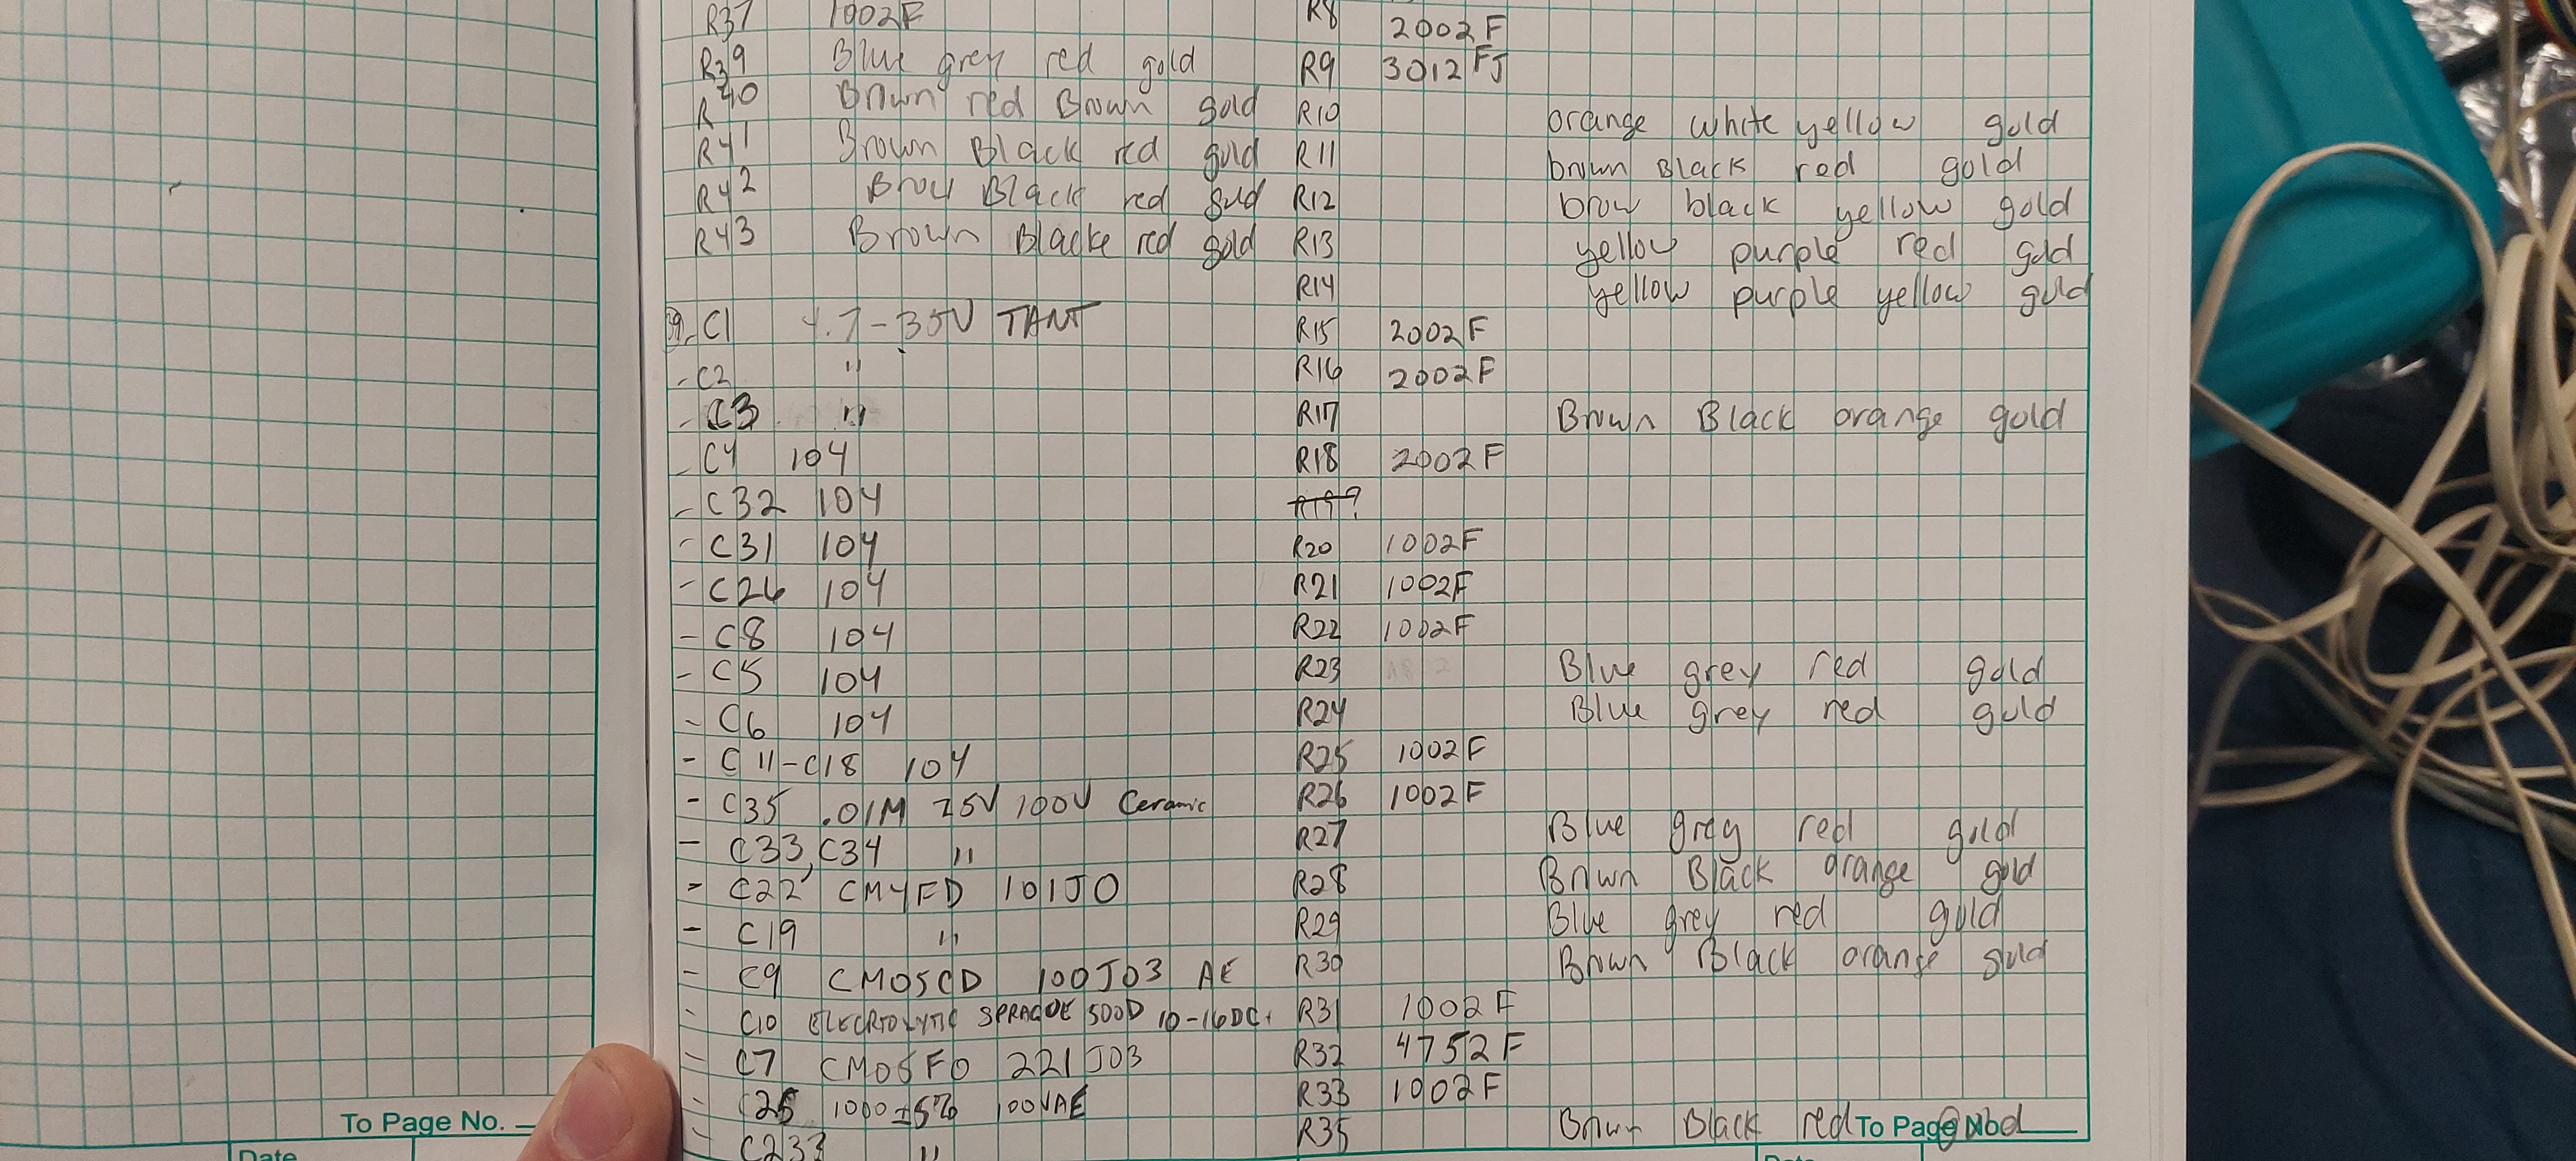 R37 1002F
R39 Blue grey red gold
R40 Brown red Brown gold
R41 Brown Black red gold
R42 Brow Black red gold
R43 Brown Blacke red gold
C1 4.7-35V TANT
-C2 "
-C3 "
-C4 104
-C32 104
-C31 104
-C26 104
-C8 104
-C5 104
-C6 104
-C11-C18 104
-C35 .01M Z5V 100V Ceramic
-C33, C34 "
-C22 CM4FD 101J0
-C19 "
-C9 CM05CD 100J03 AE
-C10 SPRAGUE 500D 10-16DC
-C7 CM05F0 221J03
-C25 1000±5% 100VAE
-C23? "
R8 2002F
R9 3012FJ
R10 orange white yellow gold
R11 brown Black red gold
R12 brow black yellow gold
R13 yellow purple red gold
R14 yellow purple yellow gold
R15 2002F
R16 2002F
R17 Brown Black orange gold
R18 2002F
R19?
R20 1002F
R21 1002F
R22 1002F
R23 Blue grey red gold
R24 Blue grey red gold
R25 1002F
R26 1002F
R27 Blue grey red gold
R28 Brown Black orange gold
R29 Blue grey red gold
R30 Brown Black orange gold
R31 1002F
R32 4752F
R33 1002F
R35 Brown Black red gold
To Page No.
To Page No.
Date